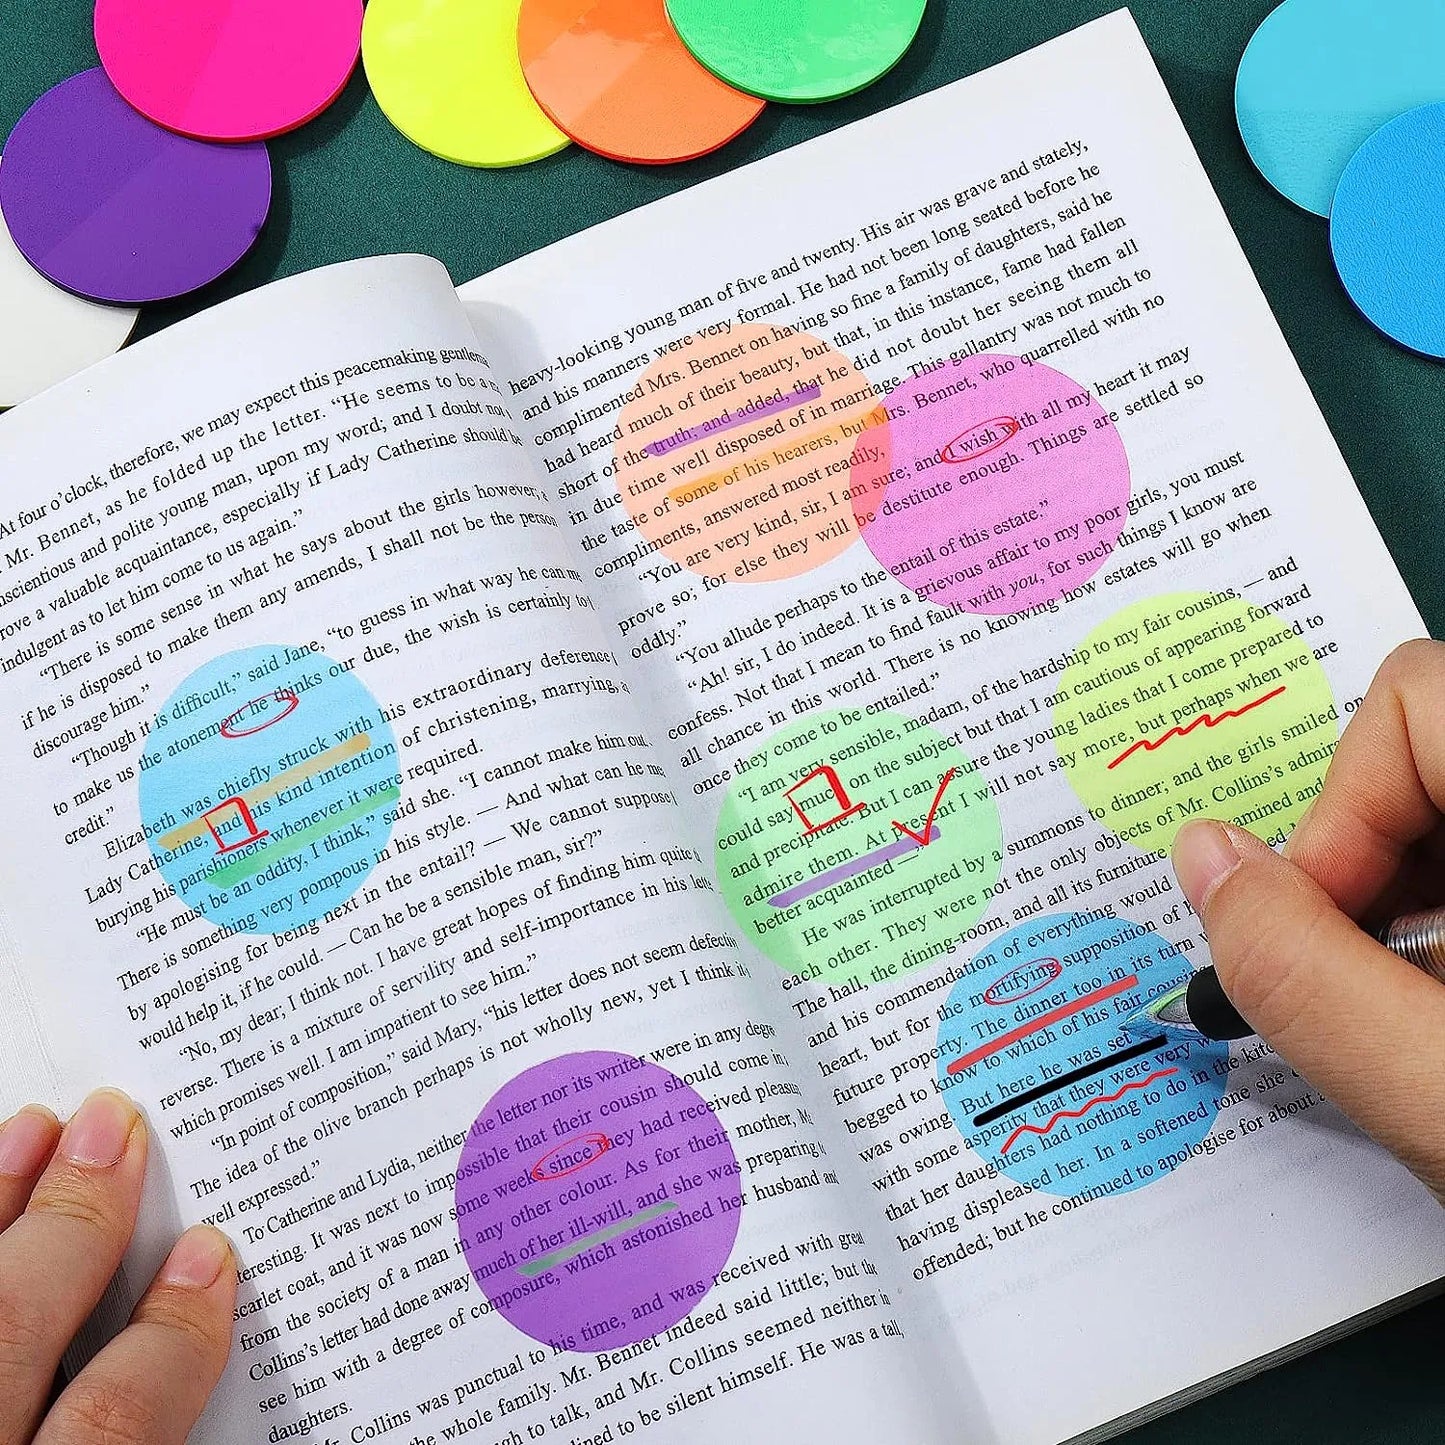 At four o'clock, therefore, we may expect this peacemaking
Mr. Bennet, as he folded up the letter. "He seems to be a
and polite young man, upon my word; and I doubt not
a valuable acquaintance, especially if Lady Catherine should be
indulgent as to let him come to us again."
"There is some sense in what he says about the girls however,
if he is disposed to make them any amends, I shall not be the person
discourage him."
"Though it is difficult," said Jane, "to guess in what way he can
to make us the atonement he thinks our due, the wish is certainly to
credit."
Elizabeth was chiefly struck with his extraordinary deference
Lady Catherine, and his kind intention of christening, marrying,
burying his parishioners whenever it were required.
"He must be an oddity, I think," said she. "I cannot make him out.
There is something very pompous in his style. — And what can he
by apologising for being next in the entail? — We cannot suppose
would help it, if he could. — Can he be a sensible man, sir?"
"No, my dear; I think not. I have great hopes of finding him quite
reverse. There is a mixture of servility and self-importance in his
which promises well. I am impatient to see him."
"In point of composition," said Mary, "his letter does not seem
The idea of the olive branch perhaps is not wholly new, yet I think
well expressed."
To Catherine and Lydia, neither the letter nor its writer were in any
It was next to impossible that their cousin should come in
scarlet coat, and it was now some weeks since they had received
from the society of a man in any other colour. As for their mother,
Collins's letter had done away much of her ill-will, and she was preparing
see him with a degree of composure, which astonished her husband
daughters.
Collins was punctual to his time, and was received with great
the whole family. Mr. Bennet indeed said little; but
to talk, and Mr. Collins seemed neither in
to be silent himself. He was a tall,
heavy-looking young man of five and twenty. His air was grave and stately,
and his manners were very formal. He had not been long seated before he
complimented Mrs. Bennet on having so fine a family of daughters, said he
had heard much of their beauty, but that, in this instance, fame had fallen
short of the truth; and added, that he did not doubt her seeing them all
in due time well disposed of in marriage. This gallantry was not much to
the taste of some of his hearers, but Mrs. Bennet, who quarrelled with no
compliments, answered most readily,
"You are very kind, sir, I am sure; and I wish with all my heart it may
prove so; for else they will be destitute enough. Things are settled so
oddly."
"You allude perhaps to the entail of this estate."
"Ah! sir, I do indeed. It is a grievous affair to my poor girls, you must
confess. Not that I mean to find fault with you, for such things I know are
all chance in this world. There is no knowing how estates will go when
once they come to be entailed."
"I am very sensible, madam, of the hardship to my fair cousins, — and
could say much on the subject but that I am cautious of appearing forward
and precipitate. But I can assure the young ladies that I come prepared to
admire them. At present I will not say more, but perhaps when we are
better acquainted —"
He was interrupted by a summons to dinner; and the girls smiled on
each other. They were not the only objects of Mr. Collins's
The hall, the dining-room, and all its furniture
and his commendation of everything would
heart, but for the mortifying supposition of
future property. The dinner too in its turn
begged to know to which of his fair
was owing. But here he was set
with some asperity that they were very
that her daughters had nothing to do in the
having displeased her. In a softened tone she
offended; but he continued to apologise for about